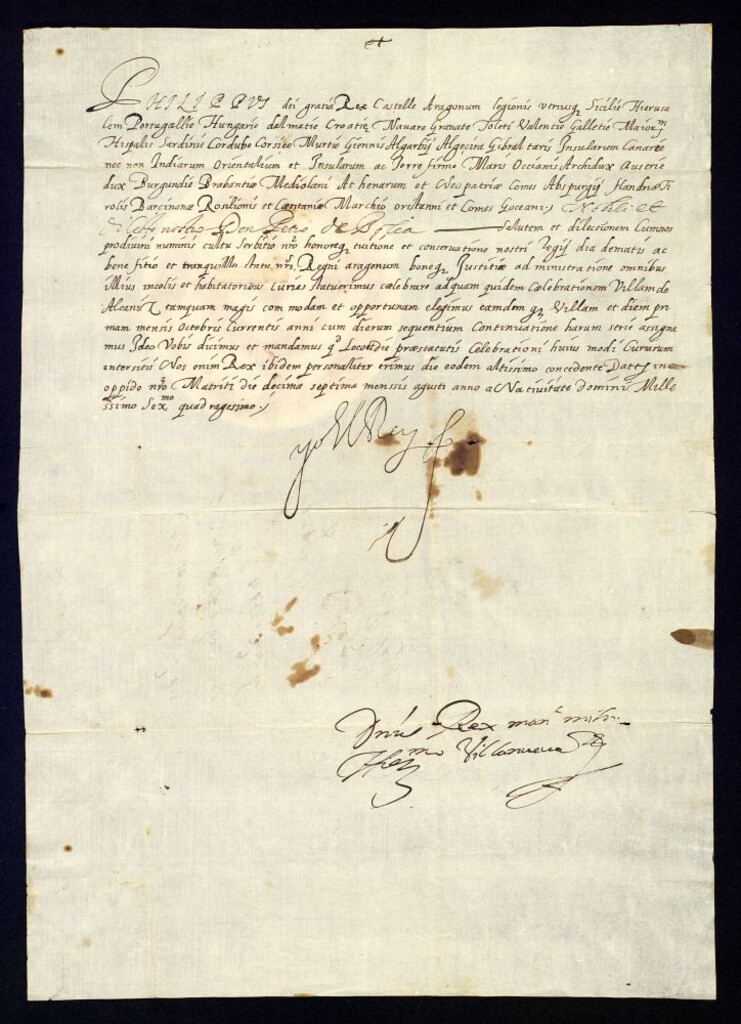 PHILIPPUS dei gratia Rex Castelle Aragonum legionis utriusq Sicilie Hierusa
lem Portugallie Hungarie dalmatie Croatie Navare Granate Toleti Valentie Galletie Maiorm
Hispalis Sardinie Cordube Corsice Murtie Giennis Algarbij Algecire Gibral taris Insularum Canare
nec non Indiarum Orientalium et Insularum ac Terre firme Maris Occianis Archidux Austrie
dux Burgundie Brabantiæ Mediolani At henarum et Neopatriæ Comes Abspurgij Flandriæ Ti
rolis Barcinonæ Rosilionis et Ceritaniæ Marchio oristanni et Comes Goceani Nobili et
dilecto nostro Don Petro de salutem et dilectionem Cumnos
prodivini numinis cultu Serbitio nrō honoreq tuitione et conservatione nostri Regij dia dematis ac
bene fitio et tranquillo nrī Regni aragonum boneq Justitiæ ad ministratione omnibus
illius incolis et habitatoribus Curias statuerimus cælebrare ad quam quidem Cælebrationem Villam de
Alcaniz tamquam magis com modam et opportunam elegimus eamdem q Villam et diem pri
mam mensis Octobris Currentis anni cum dierum sequentium Continuatione harum serie assigna
mus Ideo Vobis dicimus et mandamus qd Loco et die præstatutis Celebrationi huius modi Curiarum
intersitis Nos enim Rex ibidem personaliter erimus die eodem altissimo concedente Dates in
oppido nrō Matriti die decima septima mensis agusti anno a Nativitate Domini Mille
ssimo Sexmo quad ragesimo
yo El Rey
Dnūs Rex
Villanueva